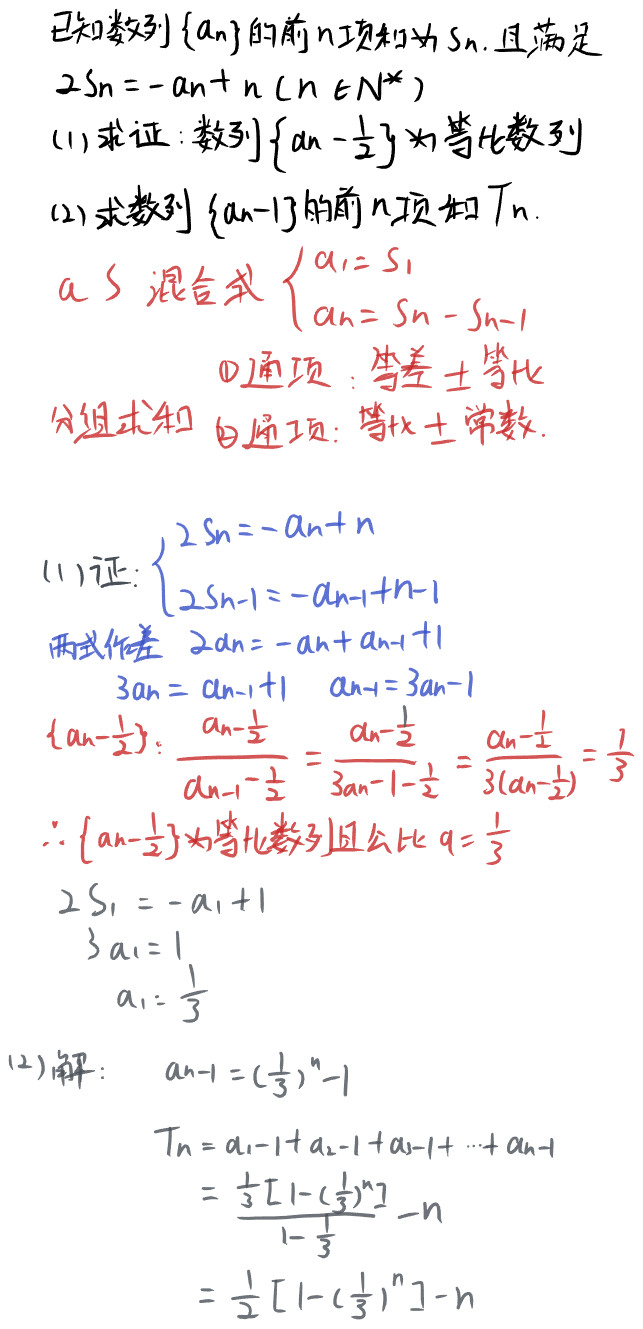 已知数列{an}的前n项和为Sn.且满足
2Sn=-an+n(n∈N*)
(1)求证:数列{an-1/2}为等比数列
(2)求数列{an-1}的前n项和Tn.
a S 混合式 { a1=S1
an=Sn-Sn-1
①通项:等差±等比
分组求和 ②通项:等比±常数.
(1)证: { 2Sn=-an+n
2Sn-1=-an-1+n-1
两式作差 2an=-an+an-1+1
3an=an-1+1 an-1=3an-1
{an-1/2}: (an-1/2)/(an-1-1/2)=(an-1/2)/(3an-1-1/2)=(an-1/2)/(3(an-1/2))=1/3
∴{an-1/2}为等比数列且公比q=1/3
2S1=-a1+1
3a1=1
a1=1/3
(2)解: an-1=(1/3)^n-1
Tn=a1-1+a2-1+a3-1+…+an-1
=(1/3[1-(1/3)^n])/(1-1/3)-n
=1/2[1-(1/3)^n]-n